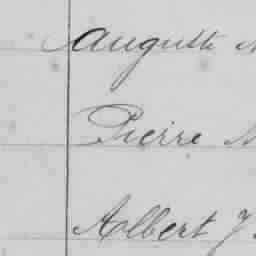 Auguste
Pierre
Albert J